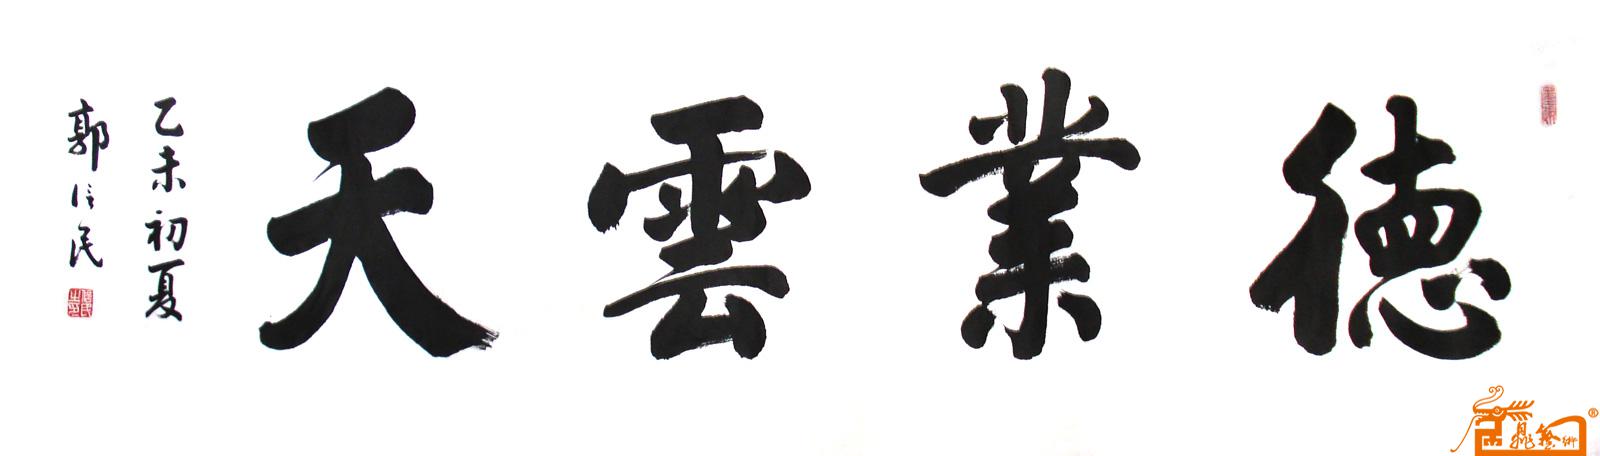 德業雲天
乙未初夏
郭信民